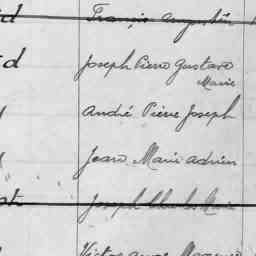 François Augustin
d
Joseph Pierre Gustave
Marie
André Pierre Joseph
Jean Marie Adrien
Joseph Charles Marie
Victor